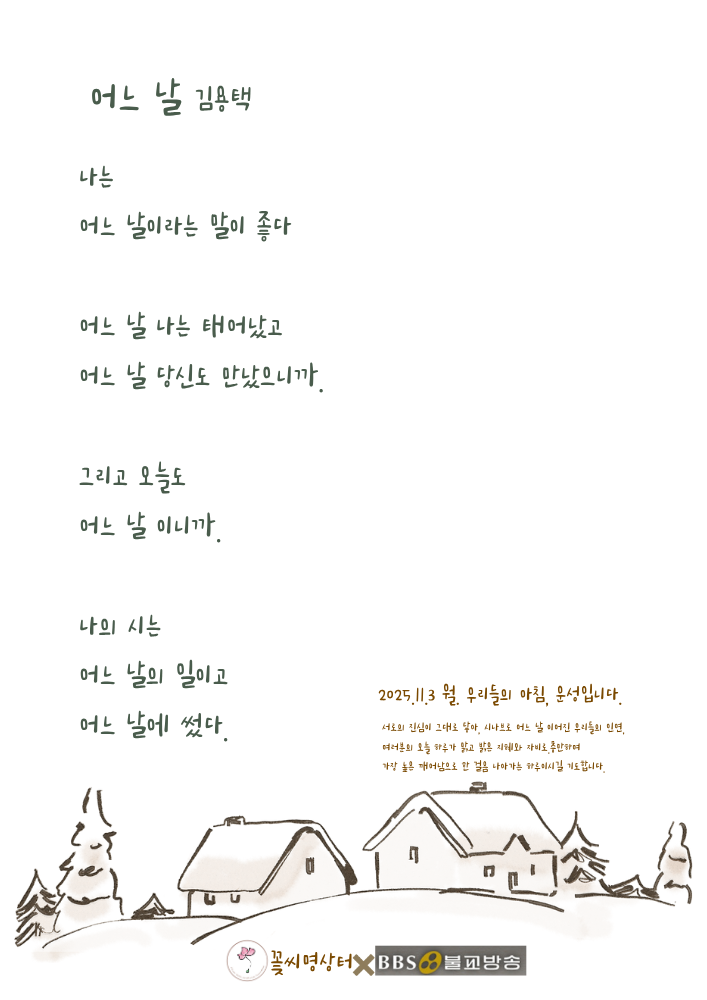 어느 날 김용택
나는
어느 날이라는 말이 좋다
어느 날 나는 태어났고
어느 날 당신도 만났으니까.
그리고 오늘도
어느 날 이니까.
나의 시는
어느 날의 일이고
어느 날에 썼다.
2025.11.3 월. 우리들의 아침, 운성입니다.
서로의 진심이 그대로 닿아, 시나브로 어느 날 이어진 우리들의 인연.
여러분의 오늘 하루가 맑고 밝은 지혜와 자비로 충만하며
가장 높은 깨어남으로 한 걸음 나아가는 하루이시길 기도합니다.
꽃씨명상터×BBS 불교방송